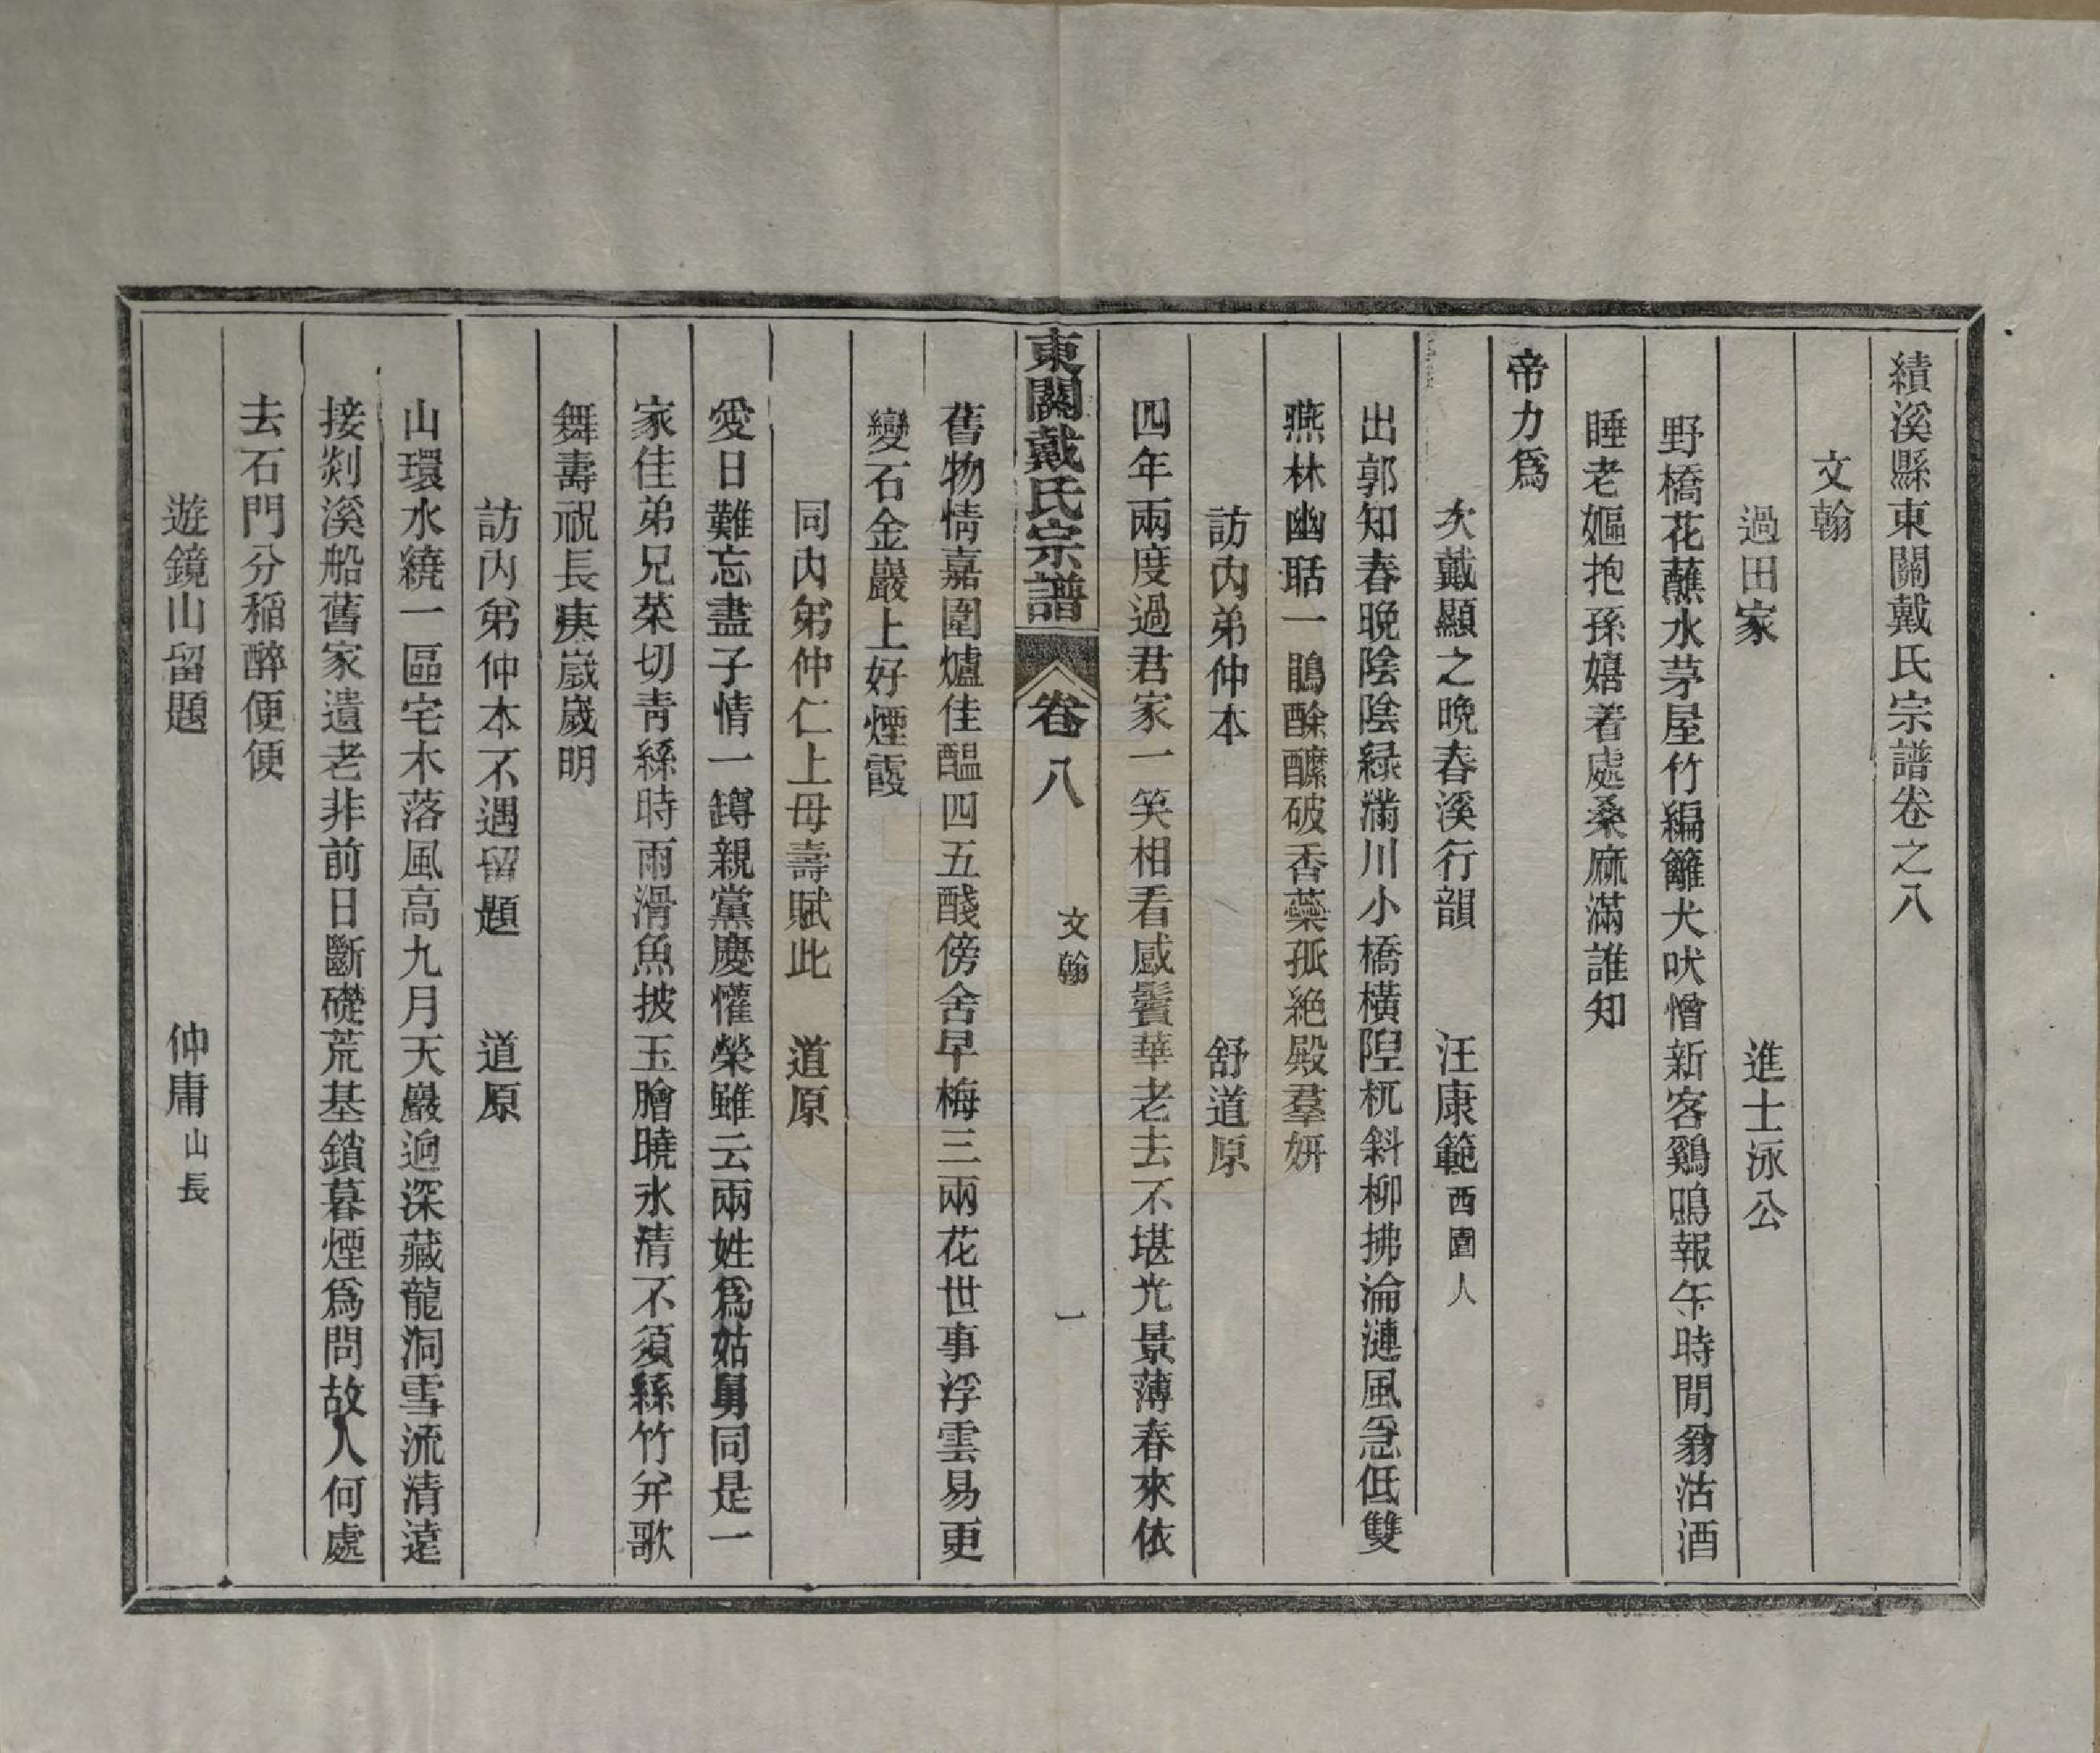 績溪縣東關戴氏宗譜卷之八
文翰
過田家　進士泳公
野橋花蘸水茅屋竹編籬犬吠憎新客鷄鳴報午時閒翁沽酒
睡老嫗抱孫嬉着處桑麻滿誰知
帝力爲
次戴顯之晩春溪行韻　汪康範西園人
出郭知春晩陰陰緑滿川小橋橫隉杌斜柳拂淪漣風急低雙
燕林幽聒一鵑酴醾破香蘂孤絶殿羣妍
訪内弟仲本　舒道原
四年兩度過君家一笑相看感鬢華老去不堪光景薄春來依
東關戴氏宗譜　卷八　文翰　一
舊物情嘉圍爐佳醞四五醆傍舍早梅三兩花世事浮雲易更
變石金巖上好煙霞
同内弟仲仁上母壽賦此　道原
愛日難忘盡子情一罇親黨慶懽榮雖云兩姓爲姑舅同是一
家佳弟兄菜切靑絲時雨滑魚披玉膾曉氷淸不須絲竹并歌
舞壽祝長庚嵗嵗明
訪内弟仲本不遇留題　道原
山環水繞一區宅木落風高九月天巖逈深藏龍洞雪流淸遠
接剡溪船舊家遺老非前日斷礎荒基鎖暮煙爲問故人何處
去石門分稲醉便便
遊鏡山留題　仲庸山長